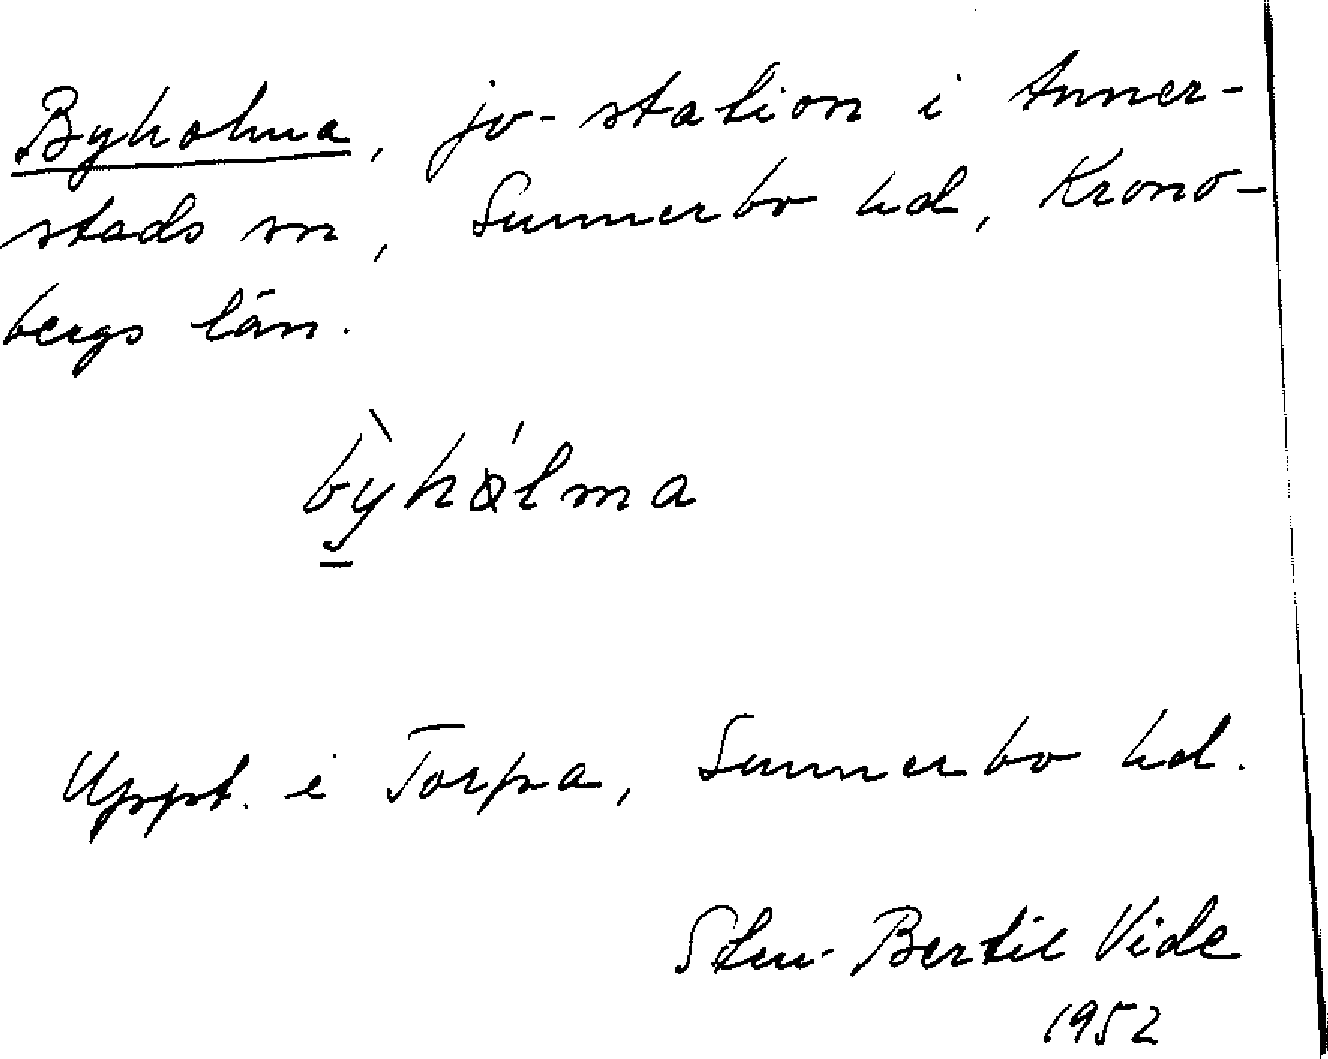 Byholma, jv-station i Anner-
stads sn, Sunnerbo hd, Krono-
bergs län.
bỳhólma
Uppt. i Torpa, Sunnerbo hd.
Sten-Bertil Vide
1952